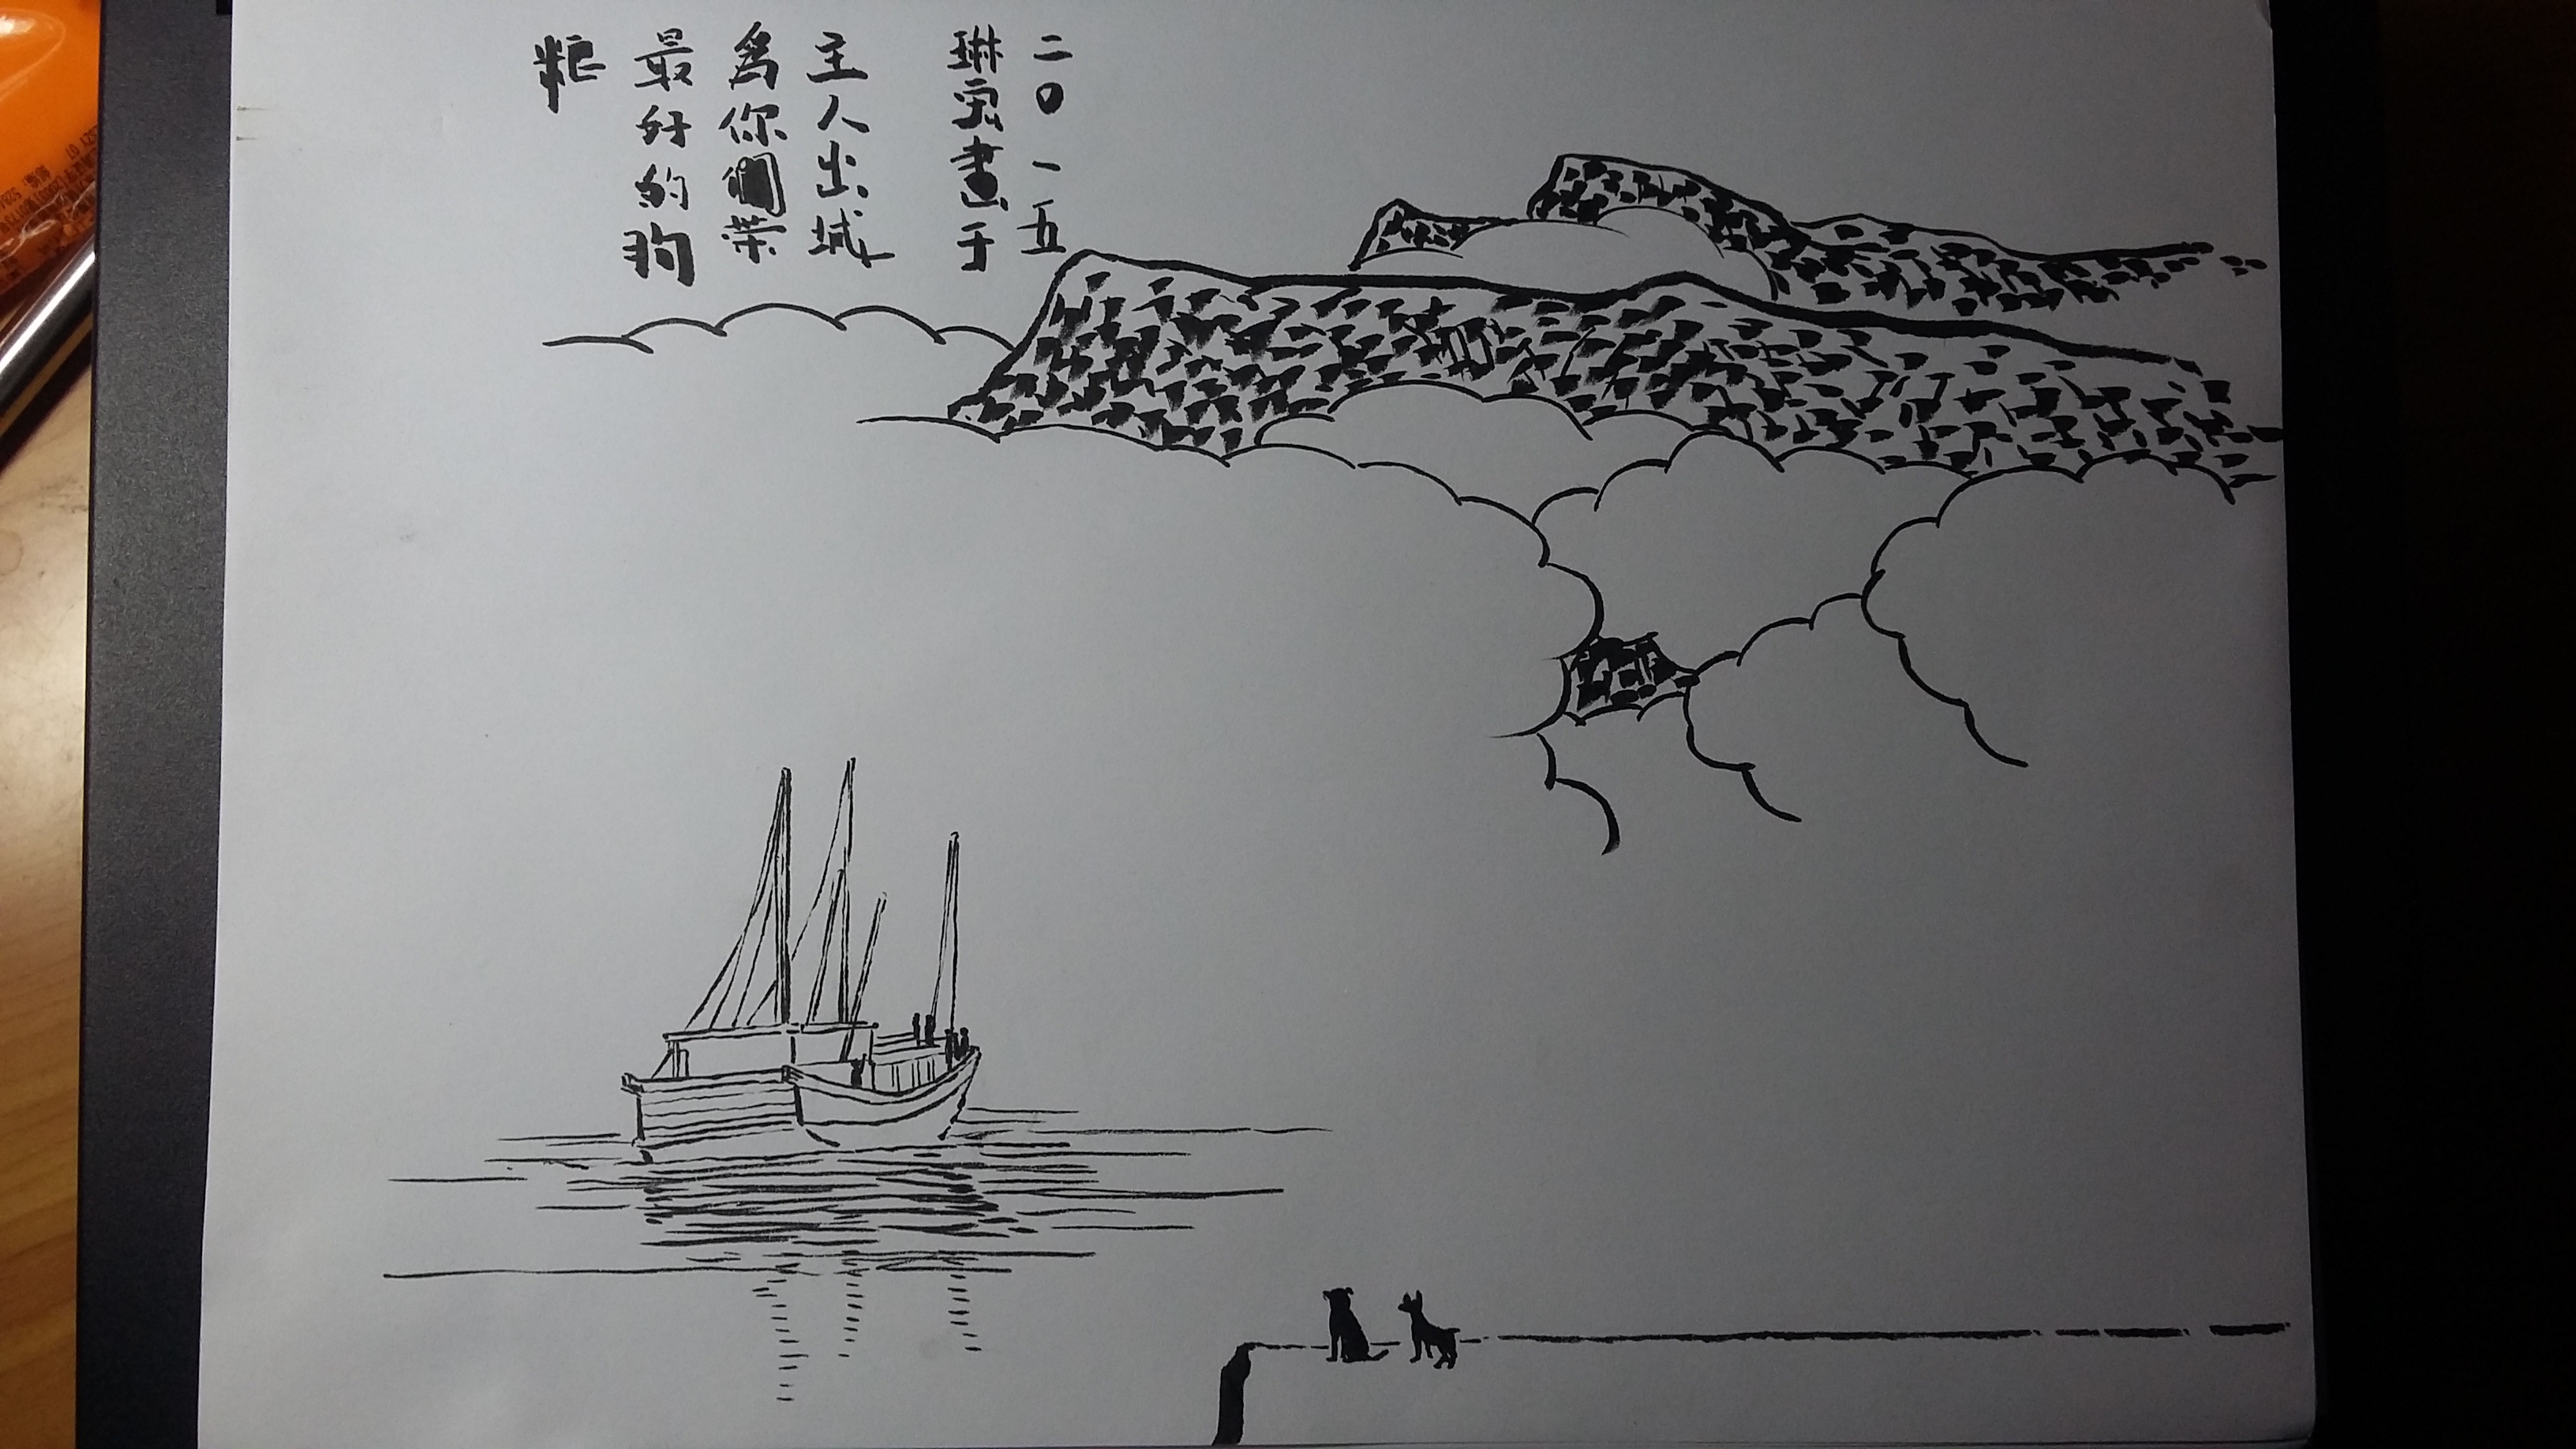 主人出城
為你們带
最好的狗
粮
琳畫于
二〇一五